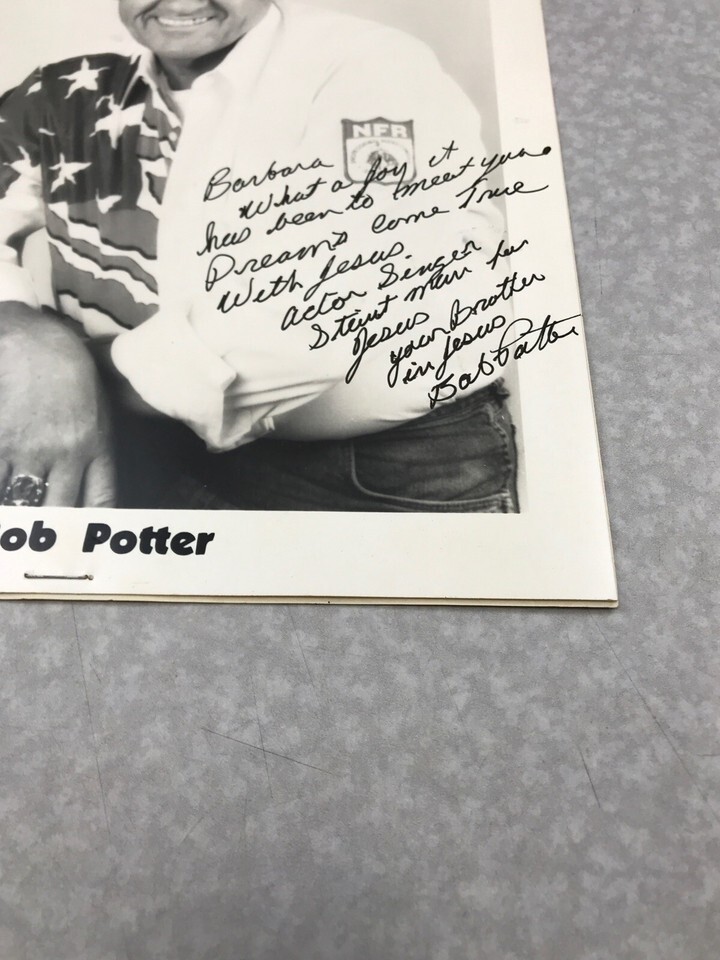 NFR
Barbara
What a joy it
has been to meet you.
Dreams come True
With Jesus.
Actor Singer
Stunt man for
Jesus
your Brother
in Jesus
Bob Potter
ob Potter